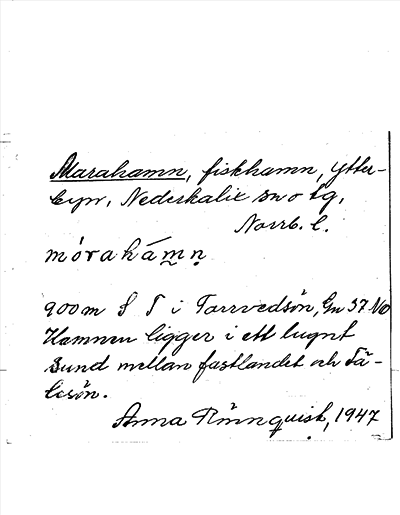 Marahamn, fiskhamn, Ytter-
byn, Nederkalix sn o tg,
Norrb. l.
mórahámn
900 m S T i Torrvedsön, Gn 37 NO
Hamnen ligger i ett lugnt
sund mellan fastlandet och
Anna Rönnquist, 1947